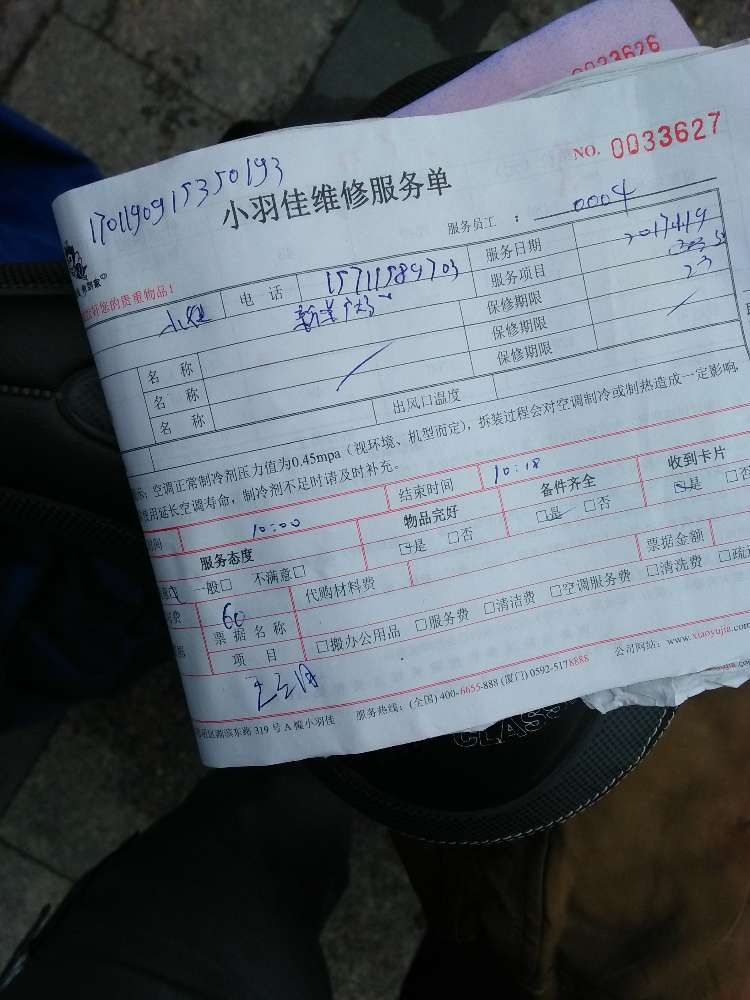 0033626
NO. 0033627
1701190915350193
小羽佳维修服务单
服务员工 : 0004
好您的贵重物品!
电 话 15711589703 服务日期 2017.1.19
服务项目
名 称 保修期限
名 称 保修期限
名 称 保修期限
出风口温度
示: 空调正常制冷剂压力值为0.45mpa (视环境、机型而定), 拆装过程会对空调制冷或制热造成一定影响,
使用延长空调寿命, 制冷剂不足时请及时补充。
时间 10:00 结束时间 10:18
服务态度 物品完好 备件齐全 收到卡片
一般□ 不满意□ □是 □否 □是 □否 □是 □否
费 60 代购材料费
票据名称 □搬办公用品 □服务费 □清洁费 □空调服务费 □清洗费 □疏通 票据金额
项 目
路滨东路 319 号 A 幢小羽佳 服务热线: (全国) 400-6655-888 (厦门) 0592-5178888 公司网站: www.xiaoyujia.com
CLASS